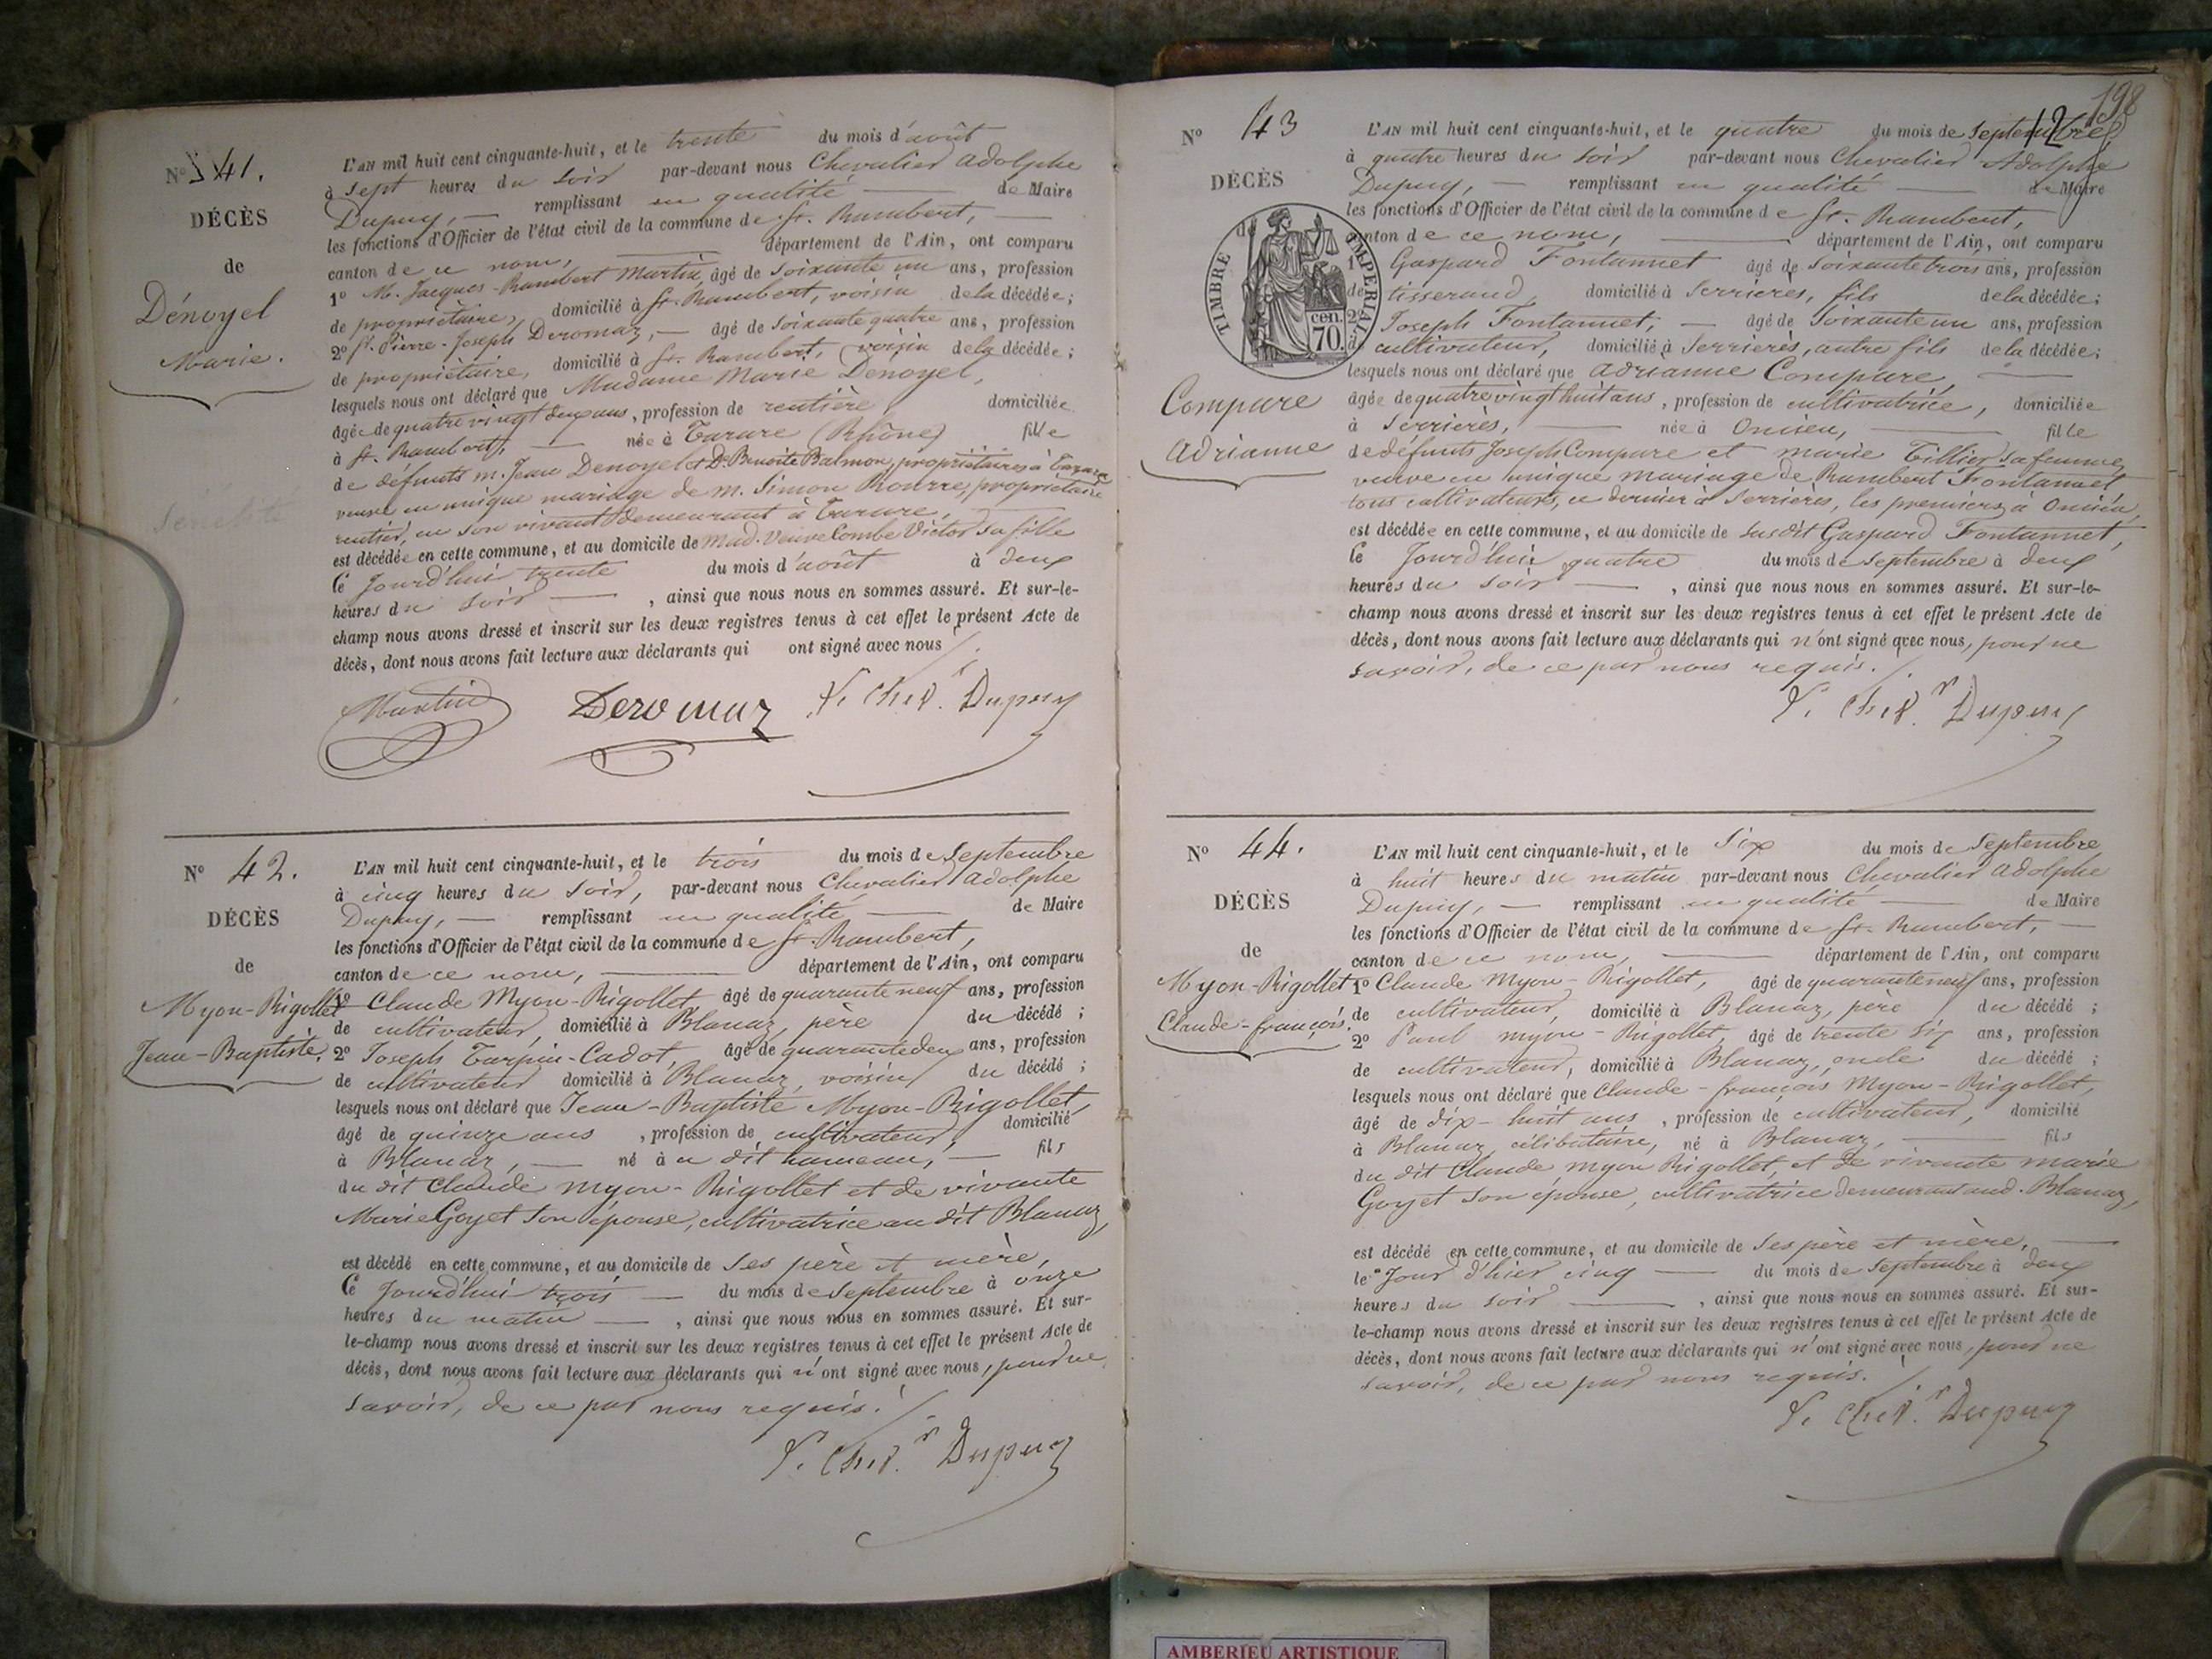 N° 41.
DÉCÈS
de
Dénoyel
Marie.
L'AN mil huit cent cinquante-huit, et le trente du mois d'août
à sept heures du soir par-devant nous Chevalier Adolphe
Dupuy, — remplissant en qualité — de Maire
les fonctions d'Officier de l'état civil de la commune de St. Rambert, —
canton de ce nom, — département de l'Ain, ont comparu
1° M. Jacques-Rambert Martin, âgé de soixante un ans, profession
de propriétaire, domicilié à St. Rambert, voisin de la décédée;
2° St. Pierre-Joseph Deromaz, — âgé de soixante quatre ans, profession
de propriétaire, domicilié à St. Rambert, voisin de la décédée;
lesquels nous ont déclaré que Madame Marie Denoyel,
âgée de quatre vingt deux ans, profession de rentière, domiciliée
à St. Rambert, — née à Tarare (Rhône) fille
de défunts m. Jean Denoyel et De. Benoite Balmon, propriétaires à Tarare
veuve en unique mariage de m. Simon Rourre, propriétaire
rentier, en son vivant demeurant à Tarare, —
est décédée en cette commune, et au domicile de Mad. Veuve Combe Victor sa fille
Ce Jourd'hui trente du mois d'août à deux
heures du soir — , ainsi que nous nous en sommes assuré. Et sur-le-
champ nous avons dressé et inscrit sur les deux registres tenus à cet effet le présent Acte de
décès, dont nous avons fait lecture aux déclarants qui ont signé avec nous
Martin Deromaz Chevr. Dupuy
N° 42.
DÉCÈS
de
Myon-Rigollet
Jean-Baptiste.
L'AN mil huit cent cinquante-huit, et le trois du mois de Septembre
à cinq heures du soir, par-devant nous Chevalier Adolphe
Dupuy, — remplissant en qualité — de Maire
les fonctions d'Officier de l'état civil de la commune de St. Rambert,
canton de ce nom, — département de l'Ain, ont comparu
1° Claude Myon-Rigollet âgé de quarante neuf ans, profession
de cultivateur, domicilié à Blanaz, père du décédé ;
2° Joseph Turpin-Cadot, âgé de quarante deux ans, profession
de cultivateur domicilié à Blanaz, voisin du décédé ;
lesquels nous ont déclaré que Jean-Baptiste Myon-Rigollet,
âgé de quinze ans , profession de cultivateur, domicilié
à Blanaz, — né à ce dit hameau, — fils
du dit Claude Myon-Rigollet et de vivante
Marie Goyet son épouse, cultivatrice au dit Blanaz,
est décédé en cette commune, et au domicile de ses père et mère,
Ce Jourd'hui trois — du mois de Septembre à onze
heures du matin — , ainsi que nous nous en sommes assuré. Et sur-
le-champ nous avons dressé et inscrit sur les deux registres tenus à cet effet le présent Acte de
décès, dont nous avons fait lecture aux déclarants qui n'ont signé avec nous, pour ne
savoir, de ce par nous requis.
Chevr. Dupuy
198
12
N° 43
DÉCÈS
TIMBRE IMPERIAL
70 cen.
Compare
Adrianne
L'AN mil huit cent cinquante-huit, et le quatre du mois de Septembre
à quatre heures du soir par-devant nous Chevalier Adolphe
Dupuy, — remplissant en qualité — de Maire
les fonctions d'Officier de l'état civil de la commune de St. Rambert,
canton de ce nom, — département de l'Ain, ont comparu
1° Gaspard Fontannet âgé de soixante trois ans, profession
de tisserand, domicilié à Serrières, fils de la décédée;
2° Joseph Fontannet, — âgé de soixante un ans, profession
d cultivateur, domicilié à Serrières, autre fils de la décédée;
lesquels nous ont déclaré que Adrianne Compare, —
âgée de quatre vingt huit ans , profession de cultivatrice, domiciliée
à Serrières, — née à Oncieu, — fille
de défunts Joseph Compare et marie Tillier sa femme,
veuve en unique mariage de Rambert Fontannet
tous cultivateurs, ce dernier à Serrières, les premiers à Oncieu,
est décédée en cette commune, et au domicile de susdit Gaspard Fontannet,
Ce Jourd'hui quatre du mois de Septembre à deux
heures du soir — , ainsi que nous nous en sommes assuré. Et sur-le-
champ nous avons dressé et inscrit sur les deux registres tenus à cet effet le présent Acte de
décès, dont nous avons fait lecture aux déclarants qui n'ont signé avec nous, pour ne
savoir, de ce par nous requis.
Chevr. Dupuy
N° 44.
DÉCÈS
de
Myon-Rigollet
Claude-françois.
L'AN mil huit cent cinquante-huit, et le Six du mois de Septembre
à huit heures du matin par-devant nous Chevalier Adolphe
Dupuy, — remplissant en qualité — de Maire
les fonctions d'Officier de l'état civil de la commune de St. Rambert, —
canton de ce nom, — département de l'Ain, ont comparu
1° Claude Myon-Rigollet, âgé de quarante neuf ans, profession
de cultivateur, domicilié à Blanaz, père du décédé ;
2° Paul myon-Rigollet, âgé de trente six ans, profession
de cultivateur, domicilié à Blanaz, oncle du décédé ;
lesquels nous ont déclaré que Claude-françois Myon-Rigollet,
âgé de dix-huit ans , profession de cultivateur, domicilié
à Blanaz célibataire, né à Blanaz, — fils
du dit Claude myon Rigollet, et de vivante marie
Goyet son épouse, cultivatrice demeurant aud. Blanaz,
est décédé en cette commune, et au domicile de ses père et mère, —
le Jour d'hier cinq — du mois de Septembre à deux
heures du soir — , ainsi que nous nous en sommes assuré. Et sur-
le-champ nous avons dressé et inscrit sur les deux registres tenus à cet effet le présent Acte de
décès, dont nous avons fait lecture aux déclarants qui n'ont signé avec nous, pour ne
savoir, de ce par nous requis.
Chevr. Dupuy
AMBERIEU ARTISTIQUE